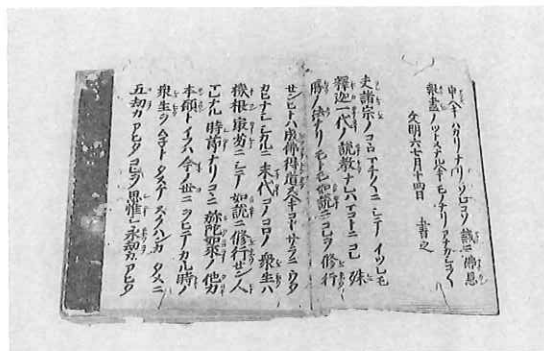 申ヘキハカリナリソレコソ誠ニ佛恩
報盡ノツトメタルヘキモノナリアナカシコ〱
文明六七月十四日 書之
夫諸宗ノコヽロマチ〱ニシテイツレモ
釋迦一代ノ説教ナレハマコトニコレ殊
勝ノ法ナリモトモ如説ニコレヲ修行
センヒトハ成佛得道スヘキコトサラニウタ
カヒナシシカルニ末代コノコロノ衆生ハ
機根最劣ニシテ如説ニ修行セン人
マレナル時節ナリコヽニ弥陀如来ノ他力
本願トイフハ今ノ世ニヲヒテカヽル時ノ
衆生ヲムネトタスケスクハンカタメニ
五劫カアヒタコレヲ思惟シ永劫カアヒタ